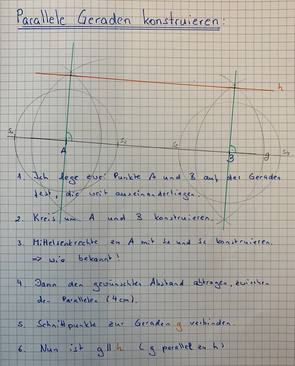 Parallele Geraden konstruieren:
h
S₁
A
S₂
S₃
B
g
S₄
1. Ich lege zwei Punkte A und B auf der Geraden
fest, die weit auseinanderliegen.
2. Kreis um A und B konstruieren.
3. Mittelsenkrechte zu A mit S₁ und S₂ konstruieren.
⇒ wie bekannt!
4. Dann den gewünschten Abstand abtragen, zwischen
den Parallelen (4cm).
5. Schnittpunkte zur Geraden g verbinden.
6. Nun ist g || h (g parallel zu h)